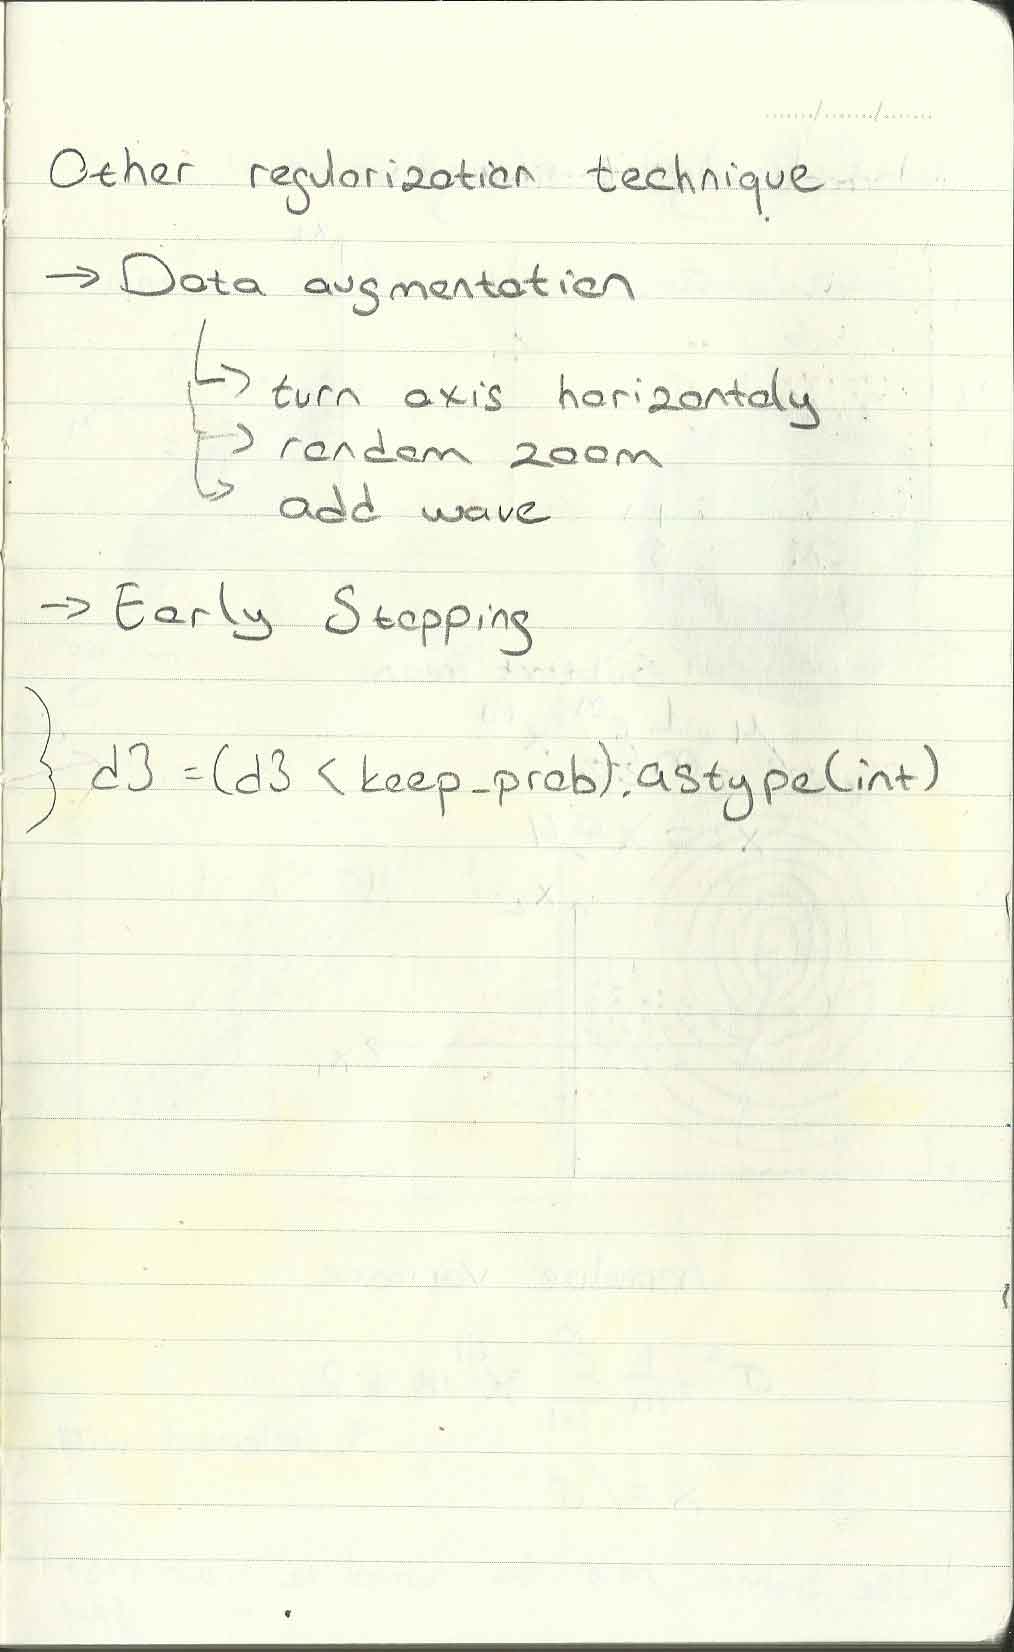 Other regularization technique
→ Data augmentation
→ turn axis horizontaly
→ random zoom
→ add wave
→ Early Stopping
} d3 = (d3 < keep_prob).astype(int)